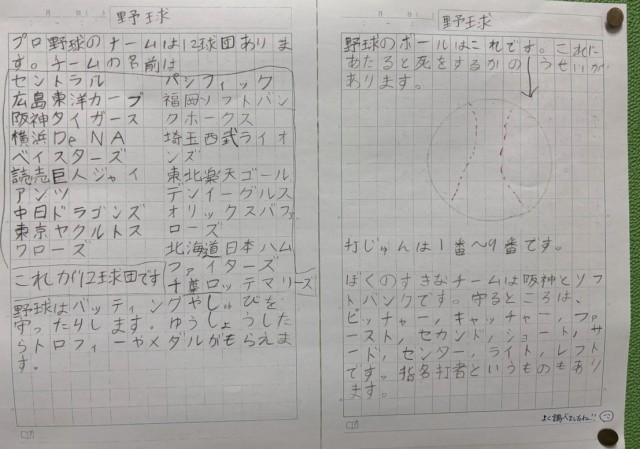 野球
プロ野球のチームは12球団ありま
す。チームの名前は
セントラル
広島東洋カープ
阪神タイガース
横浜DeNA
ベイスターズ
読売巨人ジャイ
アンツ
中日ドラゴンズ
東京ヤクルトス
ワローズ
パシフィック
福岡ソフトバン
クホークス
埼玉西武ライオ
ンズ
東北楽天ゴール
デンイーグルス
オリックスバファ
ローズ
北海道日本ハム
ファイターズ
千葉ロッテマリーズ
これが12球団です
野球はバッティングやしゅびを
守ったりします。ゆうしょうした
らトロフィーやメダルがもらえま
す。
野球
野球のボールはこれです。これに
あたると死をするかのうせいが
あります。
打じゅんは1番〜9番です。
ぼくのすきなチームは阪神とソフ
トバンクです。守るところは、
ピッチャー,キャッチャー,ファ
ースト,セカンド,ショート,サ
ード,センター,ライト,レフト
です。指名打者というものもあり
ます。
よく調べましたね!!